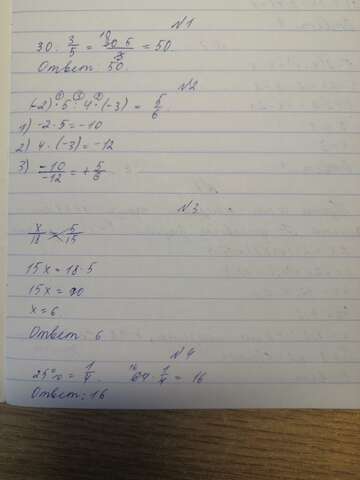 N1
30 · 3/5 = 30·5/3 = 50.
Ответ: 50.
N2
(-2) · 5 : 4 · (-3) = 5/6.
1) -2 · 5 = -10
2) 4 · (-3) = -12
3) -10/-12 = + 5/6
N3
x/18 = 5/15
15x = 18 · 5
15x = 90
x = 6
Ответ: 6
N4
25% = 1/4. 64 · 1/4 = 16
Ответ: 16